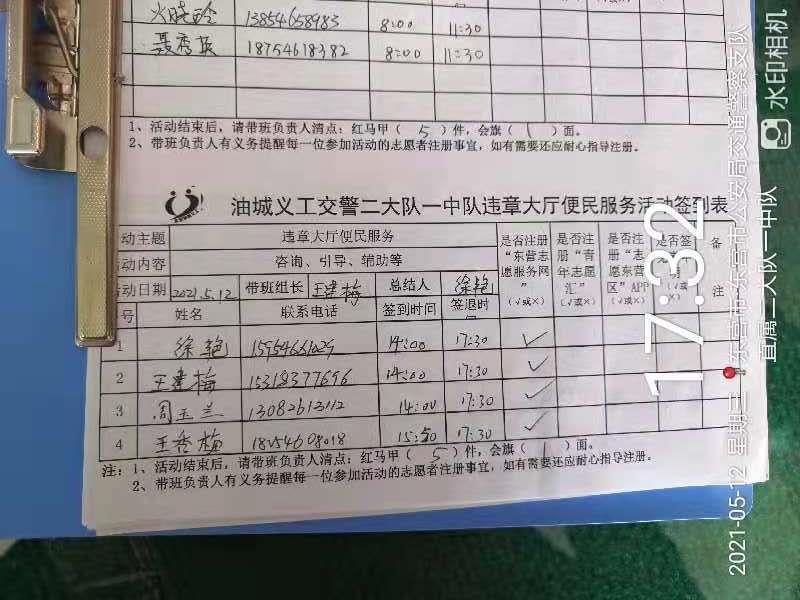 火晓玲 13854658983 8:00 11:30
聂秀英 18754618382 8:00 11:30
1、活动结束后，请带班负责人清点：红马甲（ 5 ）件，会旗（ 1 ）面。
2、带班负责人有义务提醒每一位参加活动的志愿者注册事宜，如有需要还应耐心指导注册。
油城义工交警二大队一中队违章大厅便民服务活动签到表
动主题 违章大厅便民服务
活动内容 咨询、引导、辅助等
活动日期 2021.5.12 带班组长 王建梅 总结人 徐艳
号 姓名 联系电话 签到时间 签退时间
是否注册“东营志愿服务网”（√或×）
是否注册“青年志愿汇”（√或×）
是否注册“志愿东营区”APP（√或×）
是否签
（√或×）
备注
1 徐艳 14:00 17:30 ✓
2 王建梅 15318377696 14:00 17:30 ✓
3 周玉兰 13082613112 14:00 17:30 ✓
4 王香梅 18254608018 15:50 17:30 ✓
注：1、活动结束后，请带班负责人清点：红马甲（ 5 ）件，会旗（ 1 ）面。
2、带班负责人有义务提醒每一位参加活动的志愿者注册事宜，如有需要还应耐心指导注册。
17:32
2021-05-12 星期三
东营市·东营市公安局交通警察支队
直属二大队一中队
水印相机